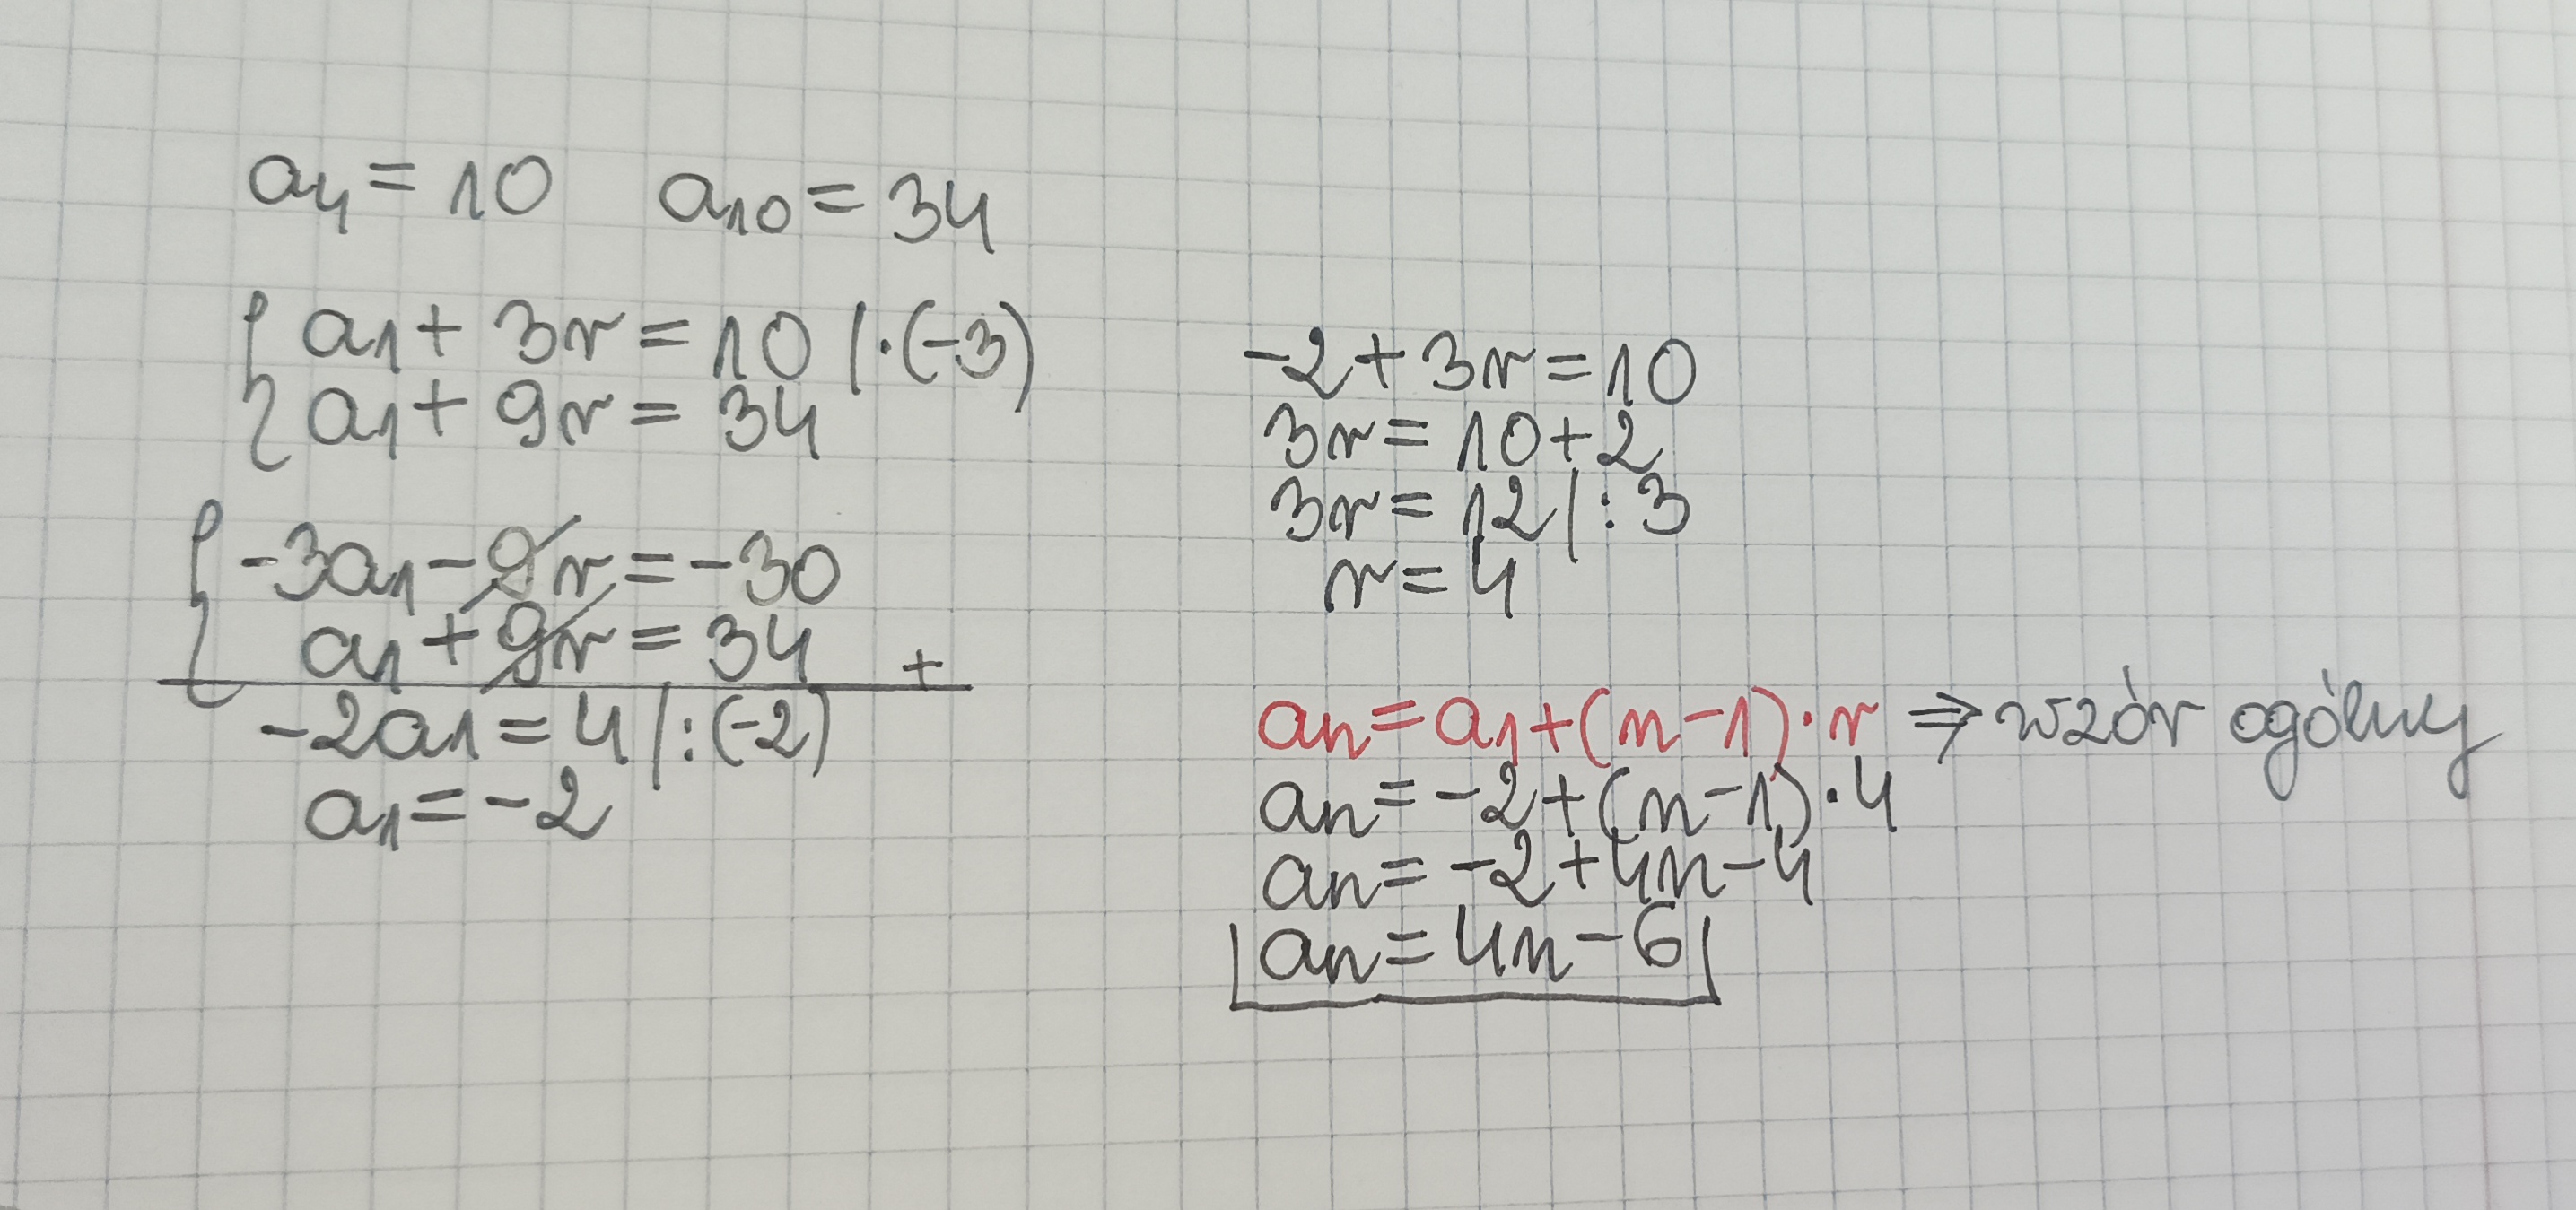 a₄ = 10 a₁₀ = 34
a₁ + 3r = 10 | · (-3)
a₁ + 9r = 34
-3a₁ - 9r = -30
a₁ + 9r = 34 +
-2a₁ = 4 | : (-2)
a₁ = -2
-2 + 3r = 10
3r = 10 + 2
3r = 12 | : 3
r = 4
an = a₁ + (n - 1) · r ⇒ wzór ogólny
an = -2 + (n - 1) · 4
an = -2 + 4n - 4
an = 4n - 6